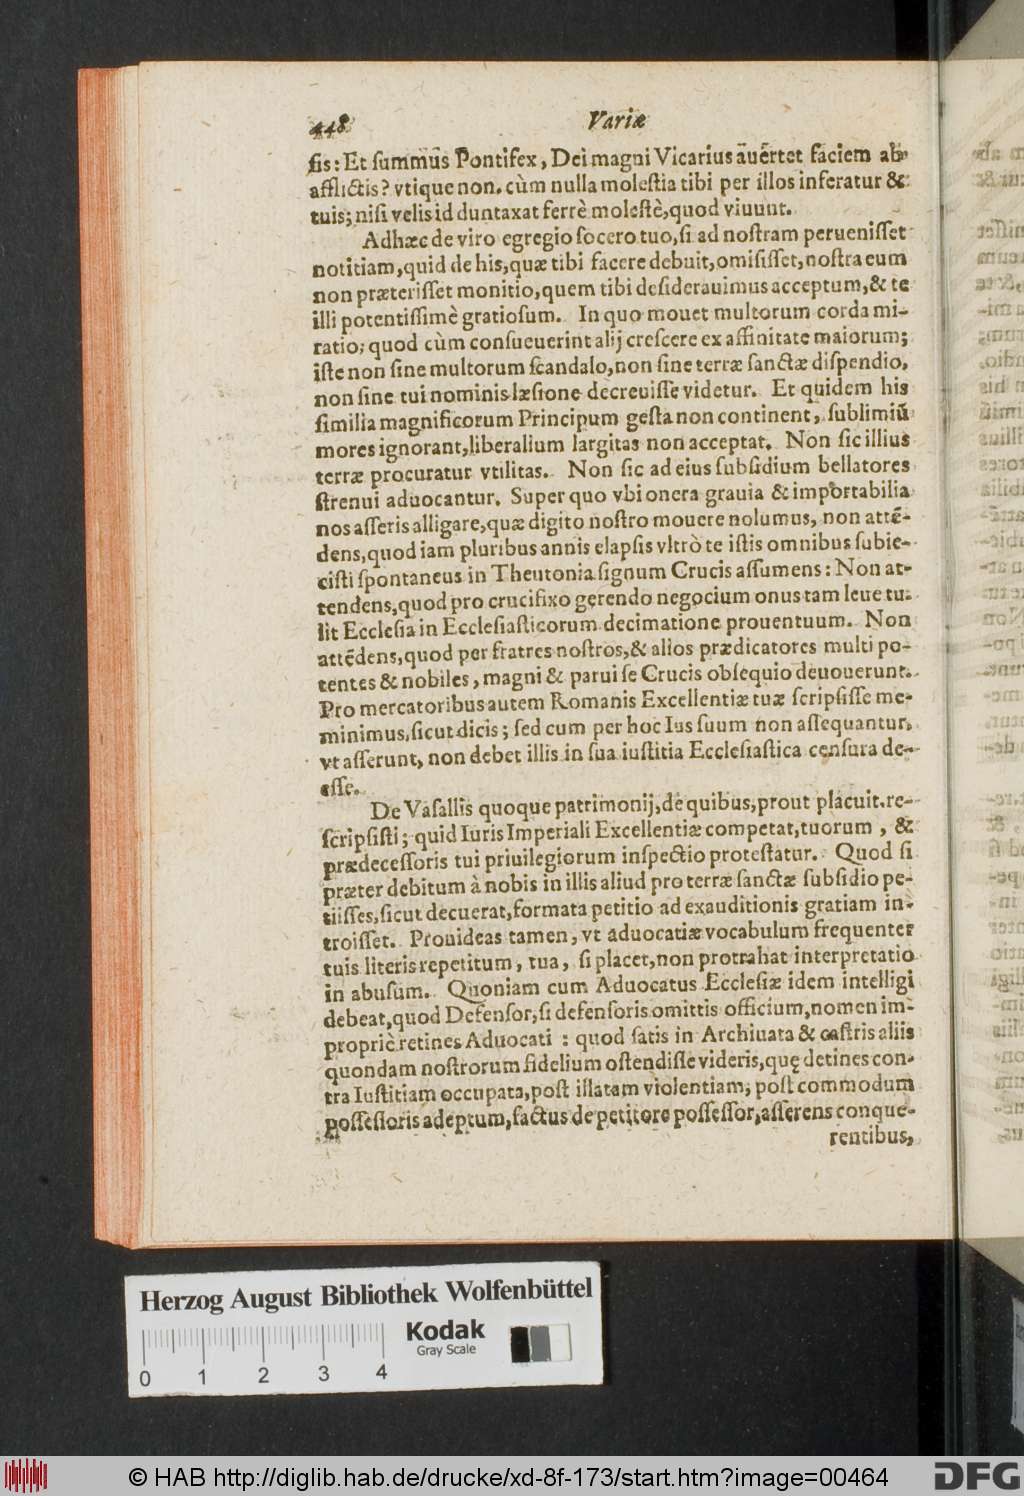 448 Variæ
sis: Et summus Pontifex, Dei magni Vicarius auertet faciem ab
afflictis? vtique non. cùm nulla molestia tibi per illos inferatur &
tuis; nisi velis id duntaxat ferrè molestè, quod viuunt.
Adhæc de viro egregio socero tuo, si ad nostram peruenisset
notitiam, quid de his, quæ tibi facere debuit, omisisset, nostra eum
non præterisset monitio, quem tibi desiderauimus acceptum, & te
illi potentissimè gratiosum. In quo mouet multorum corda mi-
ratio; quod cùm consueuerint alij crescere ex affinitate maiorum;
iste non sine multorum scandalo, non sine terræ sanctæ dispendio,
non sine tui nominis læsione decreuisse videtur. Et quidem his
similia magnificorum Principum gesta non continent, sublimiũ
mores ignorant, liberalium largitas non acceptat. Non sic illius
terræ procuratur vtilitas. Non sic ad eius subsidium bellatores
strenui aduocantur. Super quo vbi onera grauia & importabilia
nos asseris alligare, quæ digito nostro mouere nolumus, non attẽ-
dens, quod iam pluribus annis elapsis vltrò te istis omnibus subie-
cisti spontaneus in Theutonia signum Crucis assumens: Non at-
tendens, quod pro crucifixo gerendo negocium onus tam leue tu-
lit Ecclesia in Ecclesiasticorum decimatione prouentuum. Non
attẽdens, quod per fratres nostros, & alios prædicatores multi po-
tentes & nobiles, magni & parui se Crucis obsequio deuouerunt.
Pro mercatoribus autem Romanis Excellentiæ tuæ scripsisse me-
minimus, sicut dicis; sed cum per hoc Ius suum non assequantur,
vt asserunt, non debet illis in sua iustitia Ecclesiastica censura de-
esse.
De Vasallis quoque patrimonij, de quibus, prout placuit, re-
scripsisti; quid Iuris Imperiali Excellentiæ competat, tuorum, &
prædecessoris tui priuilegiorum inspectio protestatur. Quod si
præter debitum à nobis in illis aliud pro terræ sanctæ subsidio pe-
tiisses, sicut decuerat, formata petitio ad exauditionis gratiam in-
troisset. Prouideas tamen, vt aduocatiæ vocabulum frequenter
tuis literis repetitum, tua, si placet, non protrahat interpretatio
in abusum. Quoniam cum Aduocatus Ecclesiæ idem intelligi
debeat, quod Defensor, si defensoris omittis officium, nomen im-
propriè retines Aduocati: quod satis in Archiuata & castris aliis
quondam nostrorum fidelium ostendisse videris, quę detines con-
tra Iustitiam occupata, post illatam violentiam, post commodum
possessioris adeptum, factus de petitore possessor, asserens conque-
rentibus,
Herzog August Bibliothek Wolfenbüttel
Kodak
Gray Scale
0 1 2 3 4
© HAB http://diglib.hab.de/drucke/xd-8f-173/start.htm?image=00464
DFG